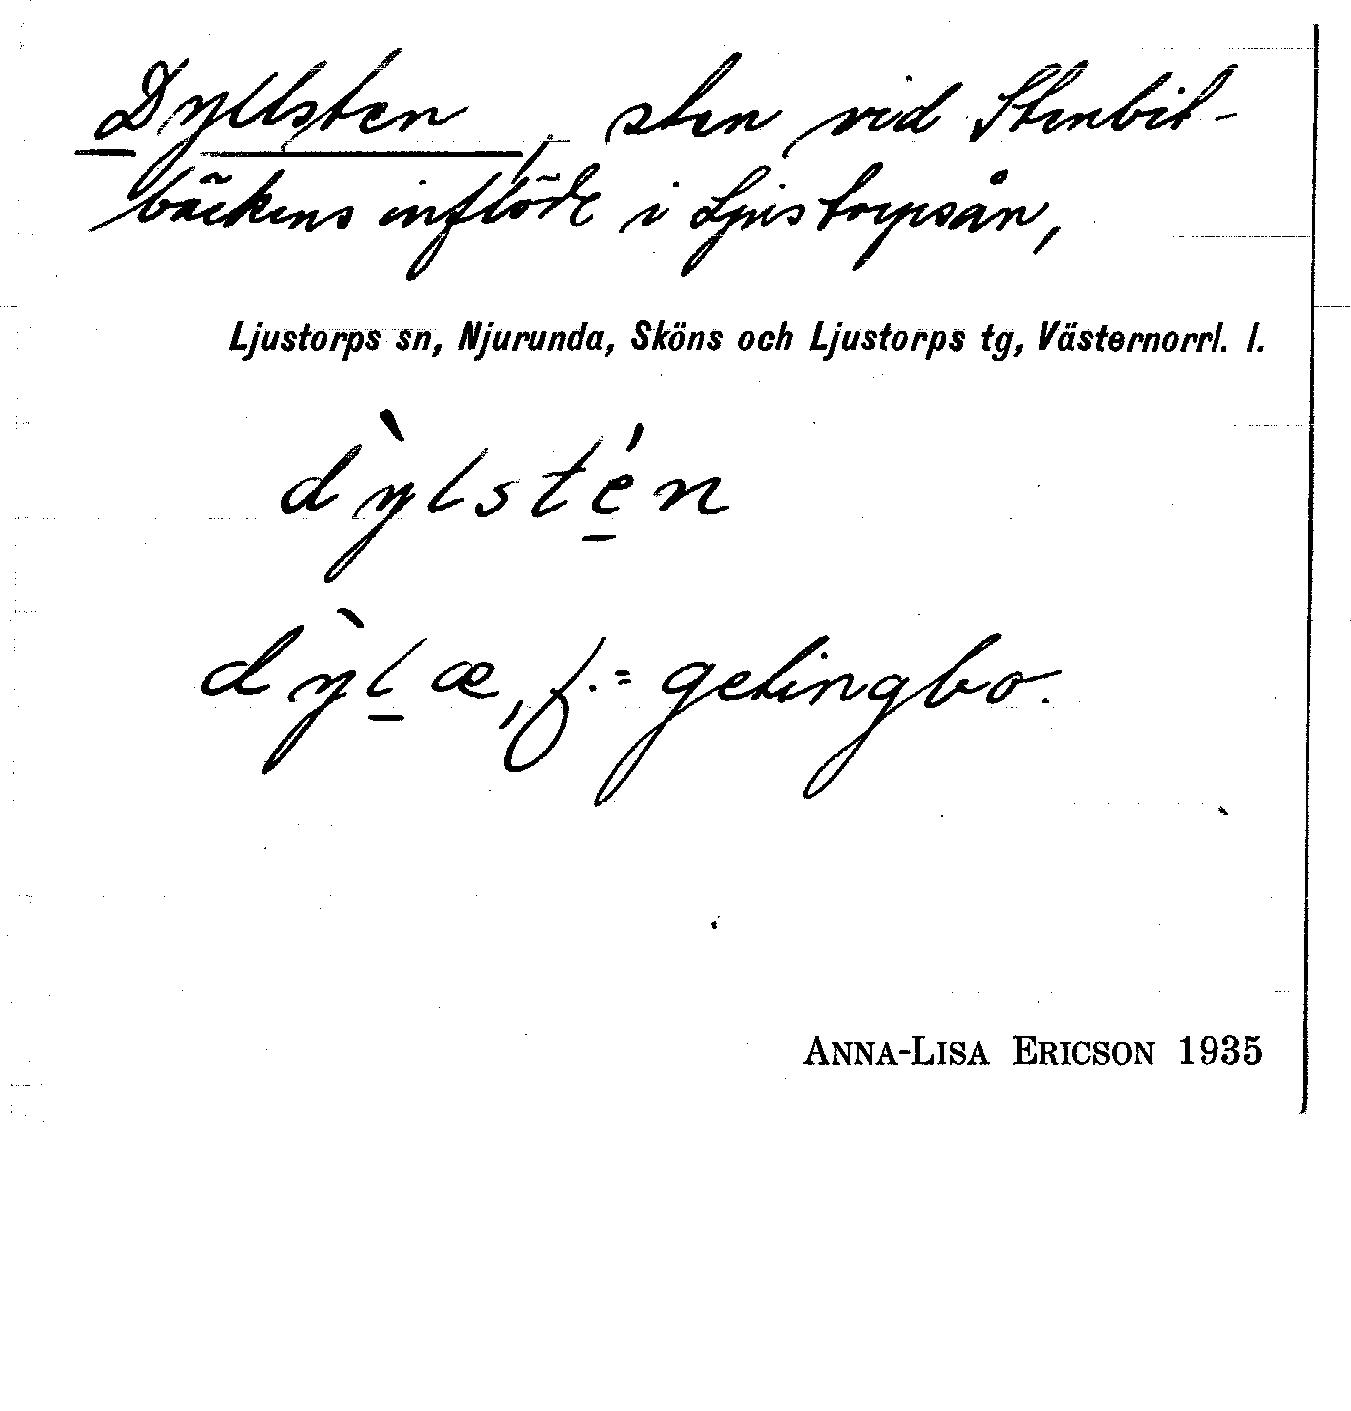 Dyllsten, sten vid Stenbit-
bäckens inflöde i Ljustorpsån,
Ljustorps sn, Njurunda, Sköns och Ljustorps tg, Västernorrl. l.
dỳlsté̠n
dỳl̠æ, f. = getingbo.
ANNA-LISA ERICSON 1935